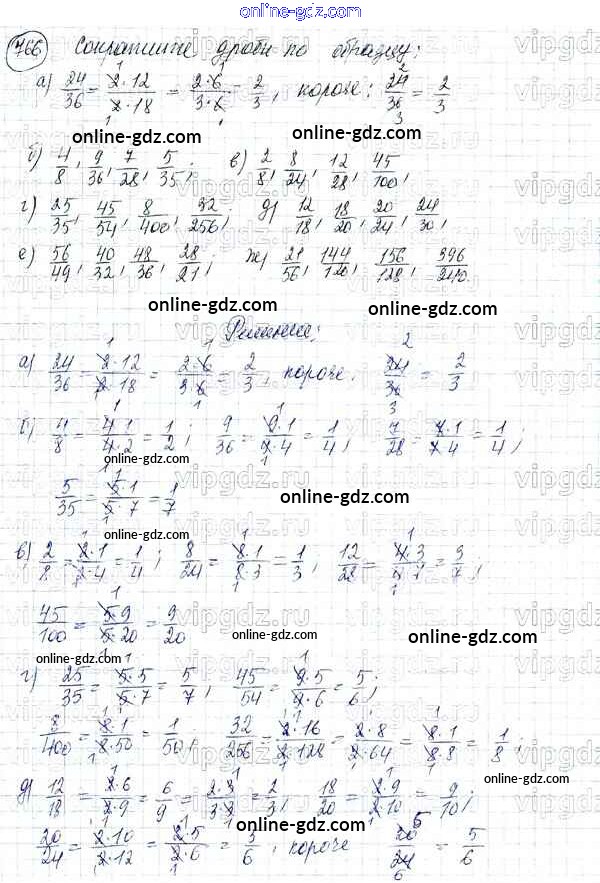 online-gdz.com
766 Сократите дроби по образцу:
а) 24/36 = 2·12/2·18 = 2·6/3·6 = 2/3, короче: 24/36 = 2/3
online-gdz.com
б) 4/8, 9/36, 7/28, 5/35; в) 2/8, 8/24, 12/28, 45/100,
г) 25/35, 45/54, 8/400, 32/256, д) 12/18, 18/20, 20/24, 24/30,
е) 56/49, 40/32, 48/36, 28/21; ж) 21/56, 144/120, 156/128, 396/240.
online-gdz.com online-gdz.com
Решение:
а) 24/36 = 2·12/2·18 = 2·6/3·6 = 2/3, короче: 24/36 = 2/3
б) 4/8 = 4·1/4·2 = 1/2; 9/36 = 9·1/9·4 = 1/4; 7/28 = 7·1/7·4 = 1/4;
online-gdz.com
5/35 = 5·1/5·7 = 1/7
online-gdz.com
online-gdz.com
в) 2/8 = 2·1/2·4 = 1/4; 8/24 = 8·1/8·3 = 1/3; 12/28 = 4·3/4·7 = 3/7;
45/100 = 5·9/5·20 = 9/20
online-gdz.com
online-gdz.com
г) 25/35 = 5·5/5·7 = 5/7, 45/54 = 9·5/9·6 = 5/6;
online-gdz.com
8/400 = 8·1/8·50 = 1/50, 32/256 = 2·16/2·128 = 2·8/2·64 = 8·1/8·8 = 1/8;
online-gdz.com
д) 12/18 = 2·6/2·9 = 6/9 = 2·3/3·3 = 2/3, 18/20 = 2·9/2·10 = 9/10;
online-gdz.com
20/24 = 2·10/2·12 = 2·5/2·6 = 5/6, короче 20/24 = 5/6
online-gdz.com